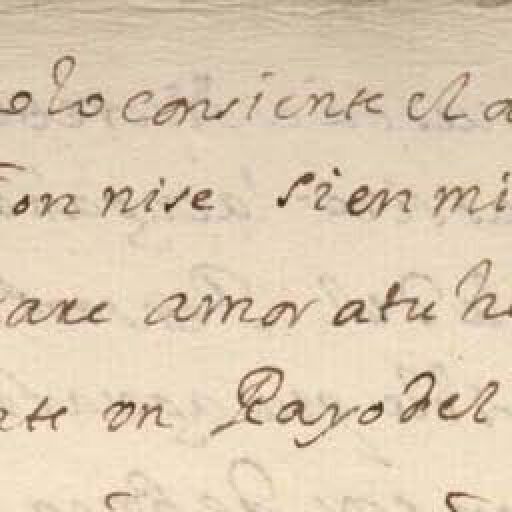 olo consiente el a
on nise si en mi
are amor a tu he
nte vn Rayo del